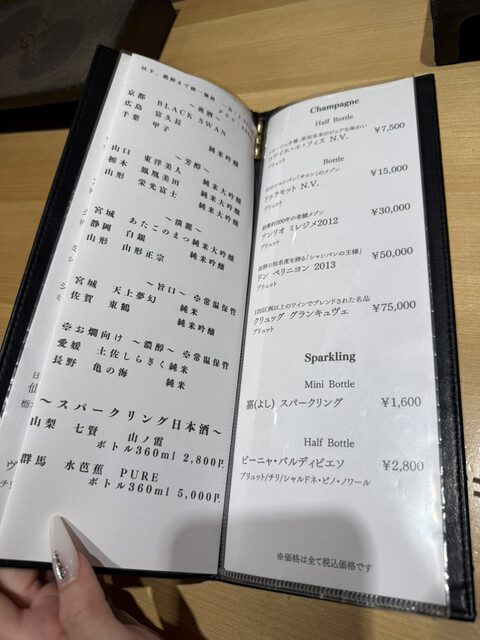 ~爽酒~
京都 BLACK SWAN
広島 富久長 純米吟醸
千葉 甲子
~芳醇~
山口 東洋美人 純米大吟醸
栃木 鳳凰美田 純米大吟醸
山形 栄光冨士 純米大吟醸
~淡麗~
宮城 あたごのまつ 純米大吟醸
静岡 白銀 純米吟醸
山形 山形正宗 純米吟醸
~旨口~ ※常温保管
宮城 天上夢幻 純米
佐賀 東鶴 純米吟醸
※お燗向け ~濃醇~ ※常温保管
愛媛 土佐しらぎく 純米
長野 亀の海 純米
~スパークリング日本酒~
山梨 七賢 山ノ霞
ボトル360ml 2,800円
群馬 水芭蕉 PURE
ボトル360ml 5,000円
Champagne
Half Bottle
ロワイエ・エ・フィス N.V. ¥7,500
ブリュット
Bottle
ドゥラモット N.V. ¥15,000
ブリュット
アンリオ ミレジメ2012 ¥30,000
ブリュット
抜群の知名度を誇る「シャンパンの王様」
ドン ペリニヨン 2013 ¥50,000
ブリュット
120区画以上のワインでブレンドされた名品
クリュッグ グランキュヴェ ¥75,000
ブリュット
Sparkling
Mini Bottle
嘉(よし) スパークリング ¥1,600
Half Bottle
ビーニャ・バルディビエソ ¥2,800
ブリュット/チリ/シャルドネ・ピノ・ノワール
※価格は全て税込価格です